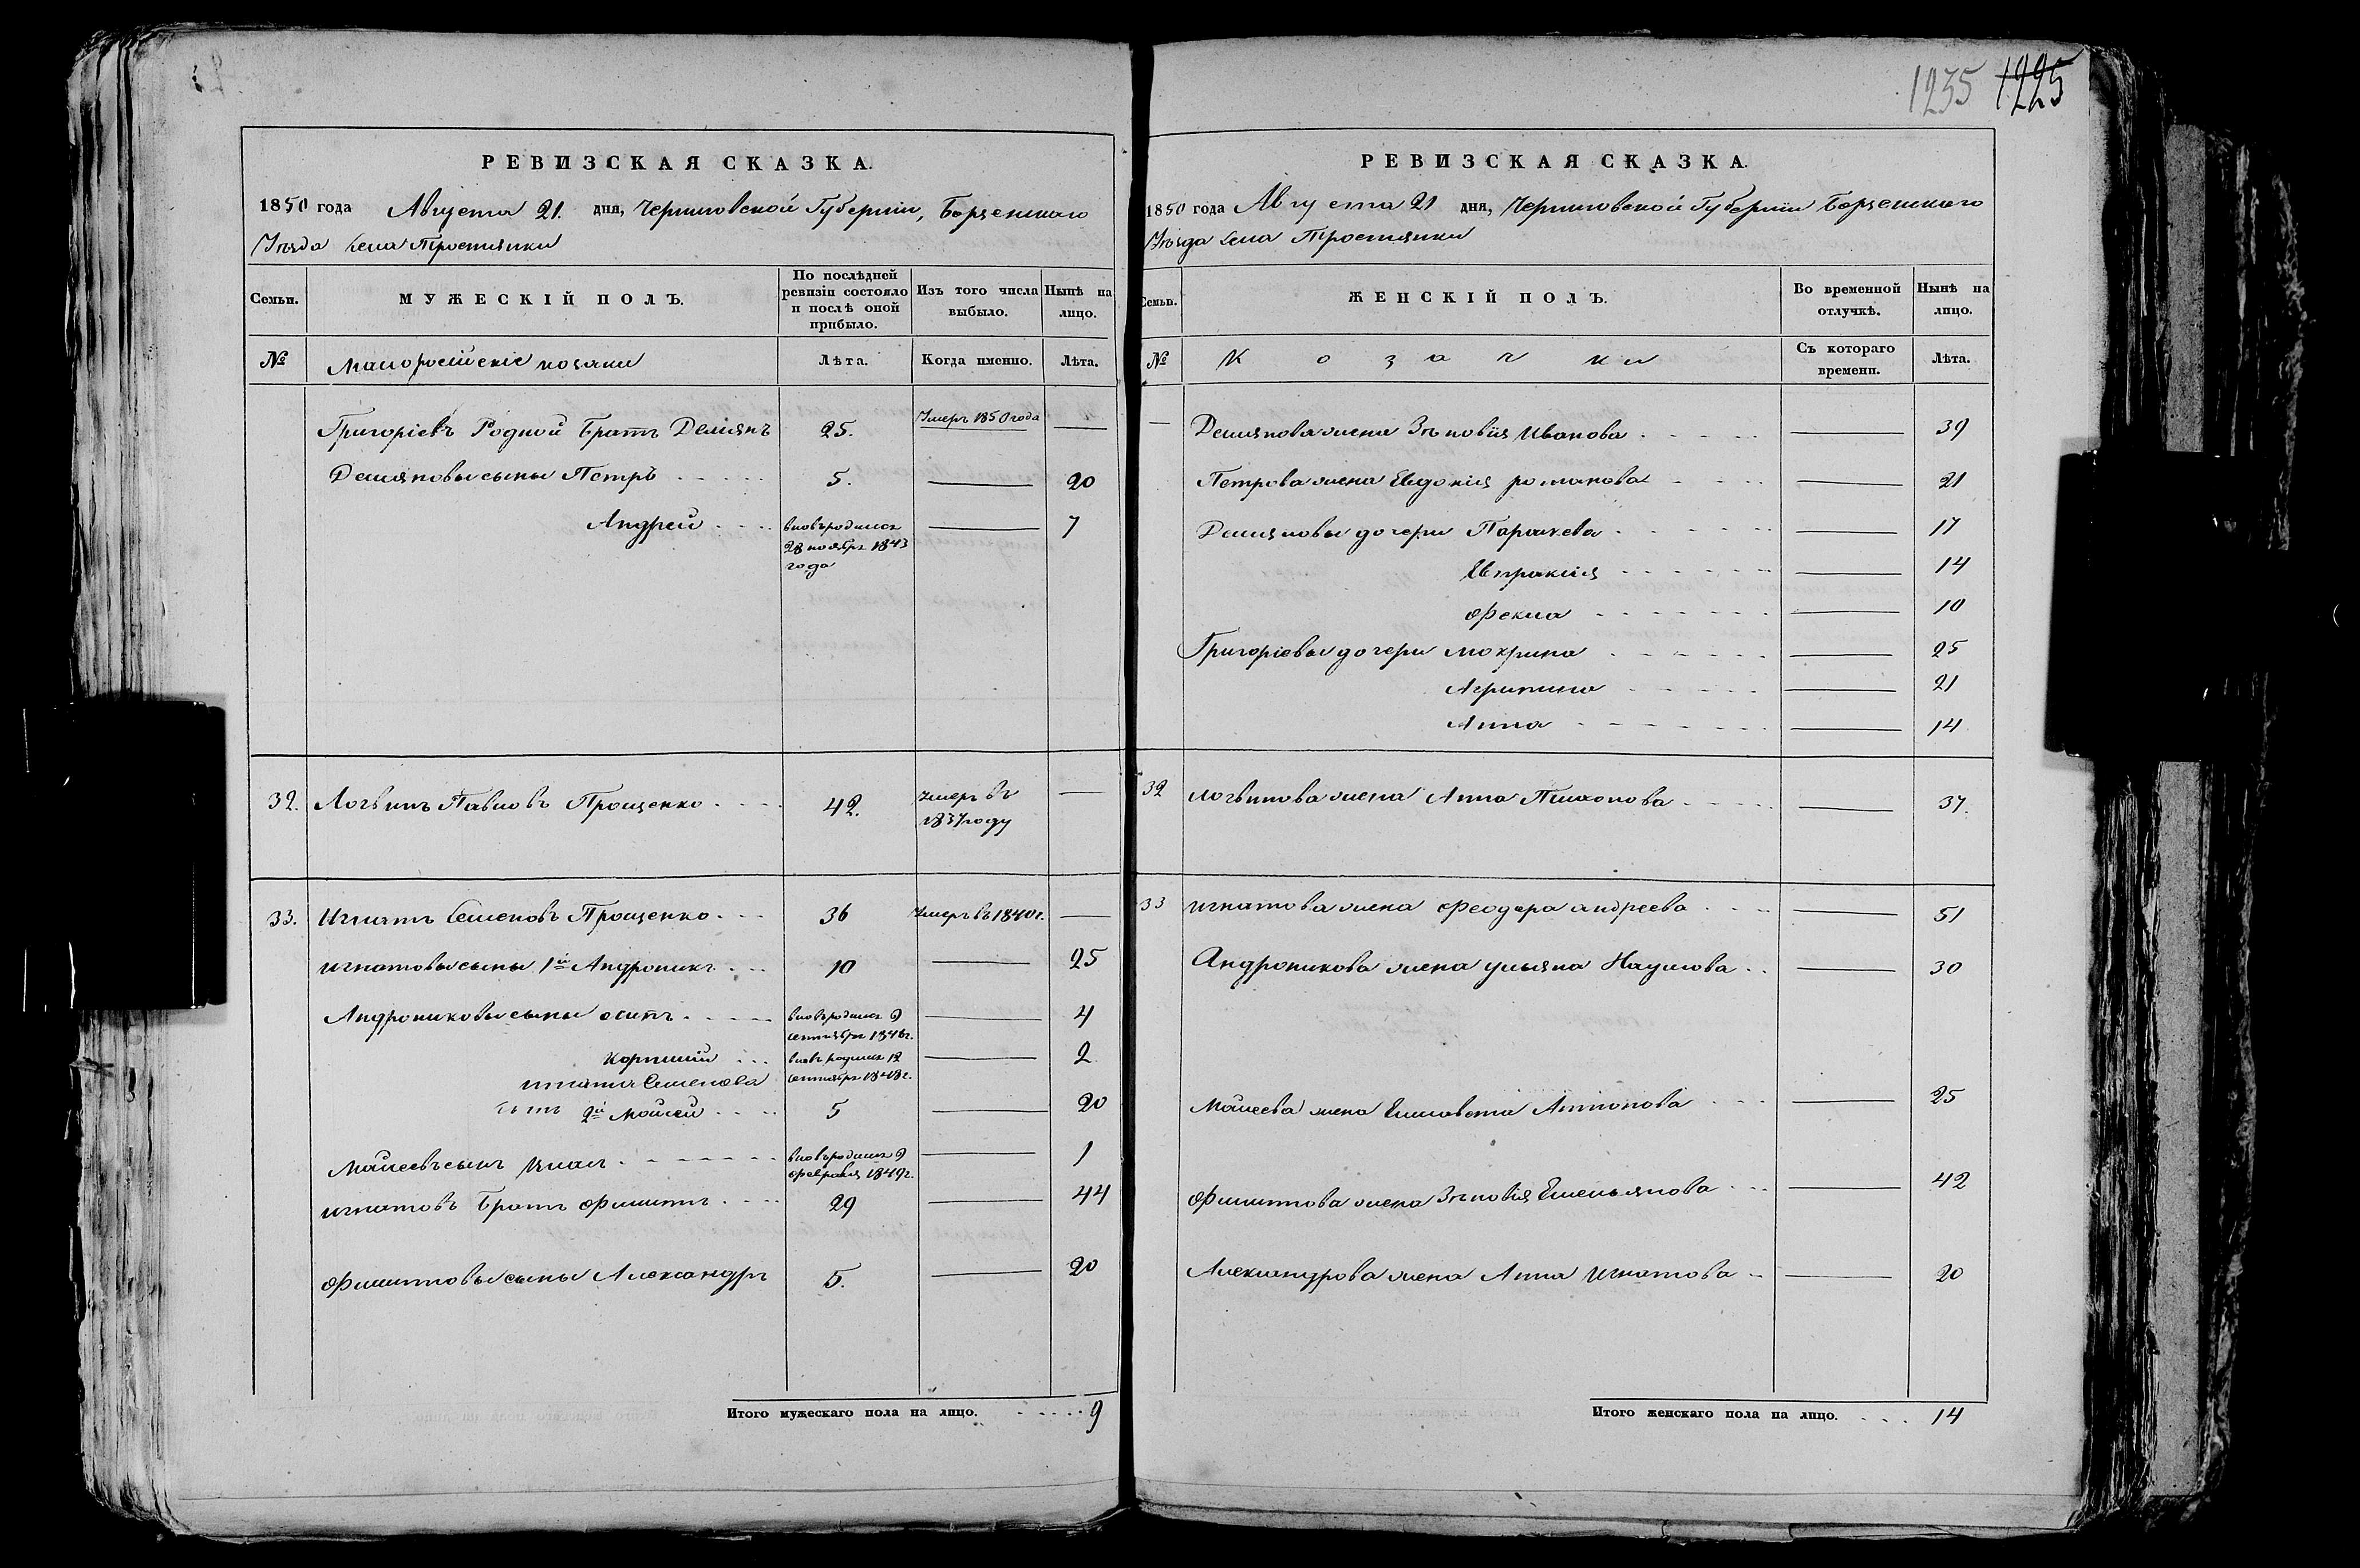 1235 1225
РЕВИЗСКАЯ СКАЗКА.
1850 года Августа 21. дня, Черниговской Губерніи, Борзенскаго
Уѣзда Села Тростянки
Семьи.
МУЖЕСКІЙ ПОЛЪ.
По послѣдней ревизіи состояло и послѣ оной прибыло.
Изъ того числа выбыло.
Нынѣ на лицо.
№ Малороссійскіе козаки Лѣта. Когда именно. Лѣта.
Григоріевъ Родной Братъ Деміянъ 25. Умеръ 1850 года —
Демяновы сыны Петръ 5. — 20
Андрей вновьродился — 7
28 ноября 1843
года
32. Логвинъ Павловъ Прощенко 42. Умеръ въ —
1837 году
33. Игнатъ Семеновъ Прощенко 36 Умеръ въ 1840 г. —
Игнатовы сыны 1й Андроникъ 10 — 25
Андрониковы сыны осипъ вновьродился 9 — 4
сентября 1846г.
Корнилій вновь родился 12 — 2
сентября 1848г.
игната Семенова
сынъ 2й Мойсей 5 — 20
Мойсеевъ сынъ вновьродился 9 — 1
февраля 1849г.
игнатовъ Братъ Филиппъ 29 — 44
Филипповы сыны Александръ 5. — 20
Итого мужескаго пола на лицо. 9
РЕВИЗСКАЯ СКАЗКА.
1850 года Августа 21 дня, Черниговской Губерніи Борзенскаго
Уѣзда Села Тростянки
Семьи.
ЖЕНСКІЙ ПОЛЪ.
Во временной отлучкѣ.
Нынѣ на лицо.
№ Козачки Съ котораго времени. Лѣта.
— Демянова жена Зѣновія Иванова — 39
Петрова жена Евдокія романова — 21
Демяновы дочери Параскева — 17
Евпраксія — 14
Фекла — 10
Григоріевы дочери Мокрина — 25
Агрипина — 21
Анна — 14
32 логвинова жена Анна Тихонова — 37.
33 игнатова жена Феодора андреева — 51
Андроникова жена ульяна Наумова — 30
Мойсеева жена Елисавета Антонова — 25
Филиппова жена Зѣновія Емельянова — 42
Александрова жена Анна Игнатова — 20
Итого женскаго пола на лицо. 14